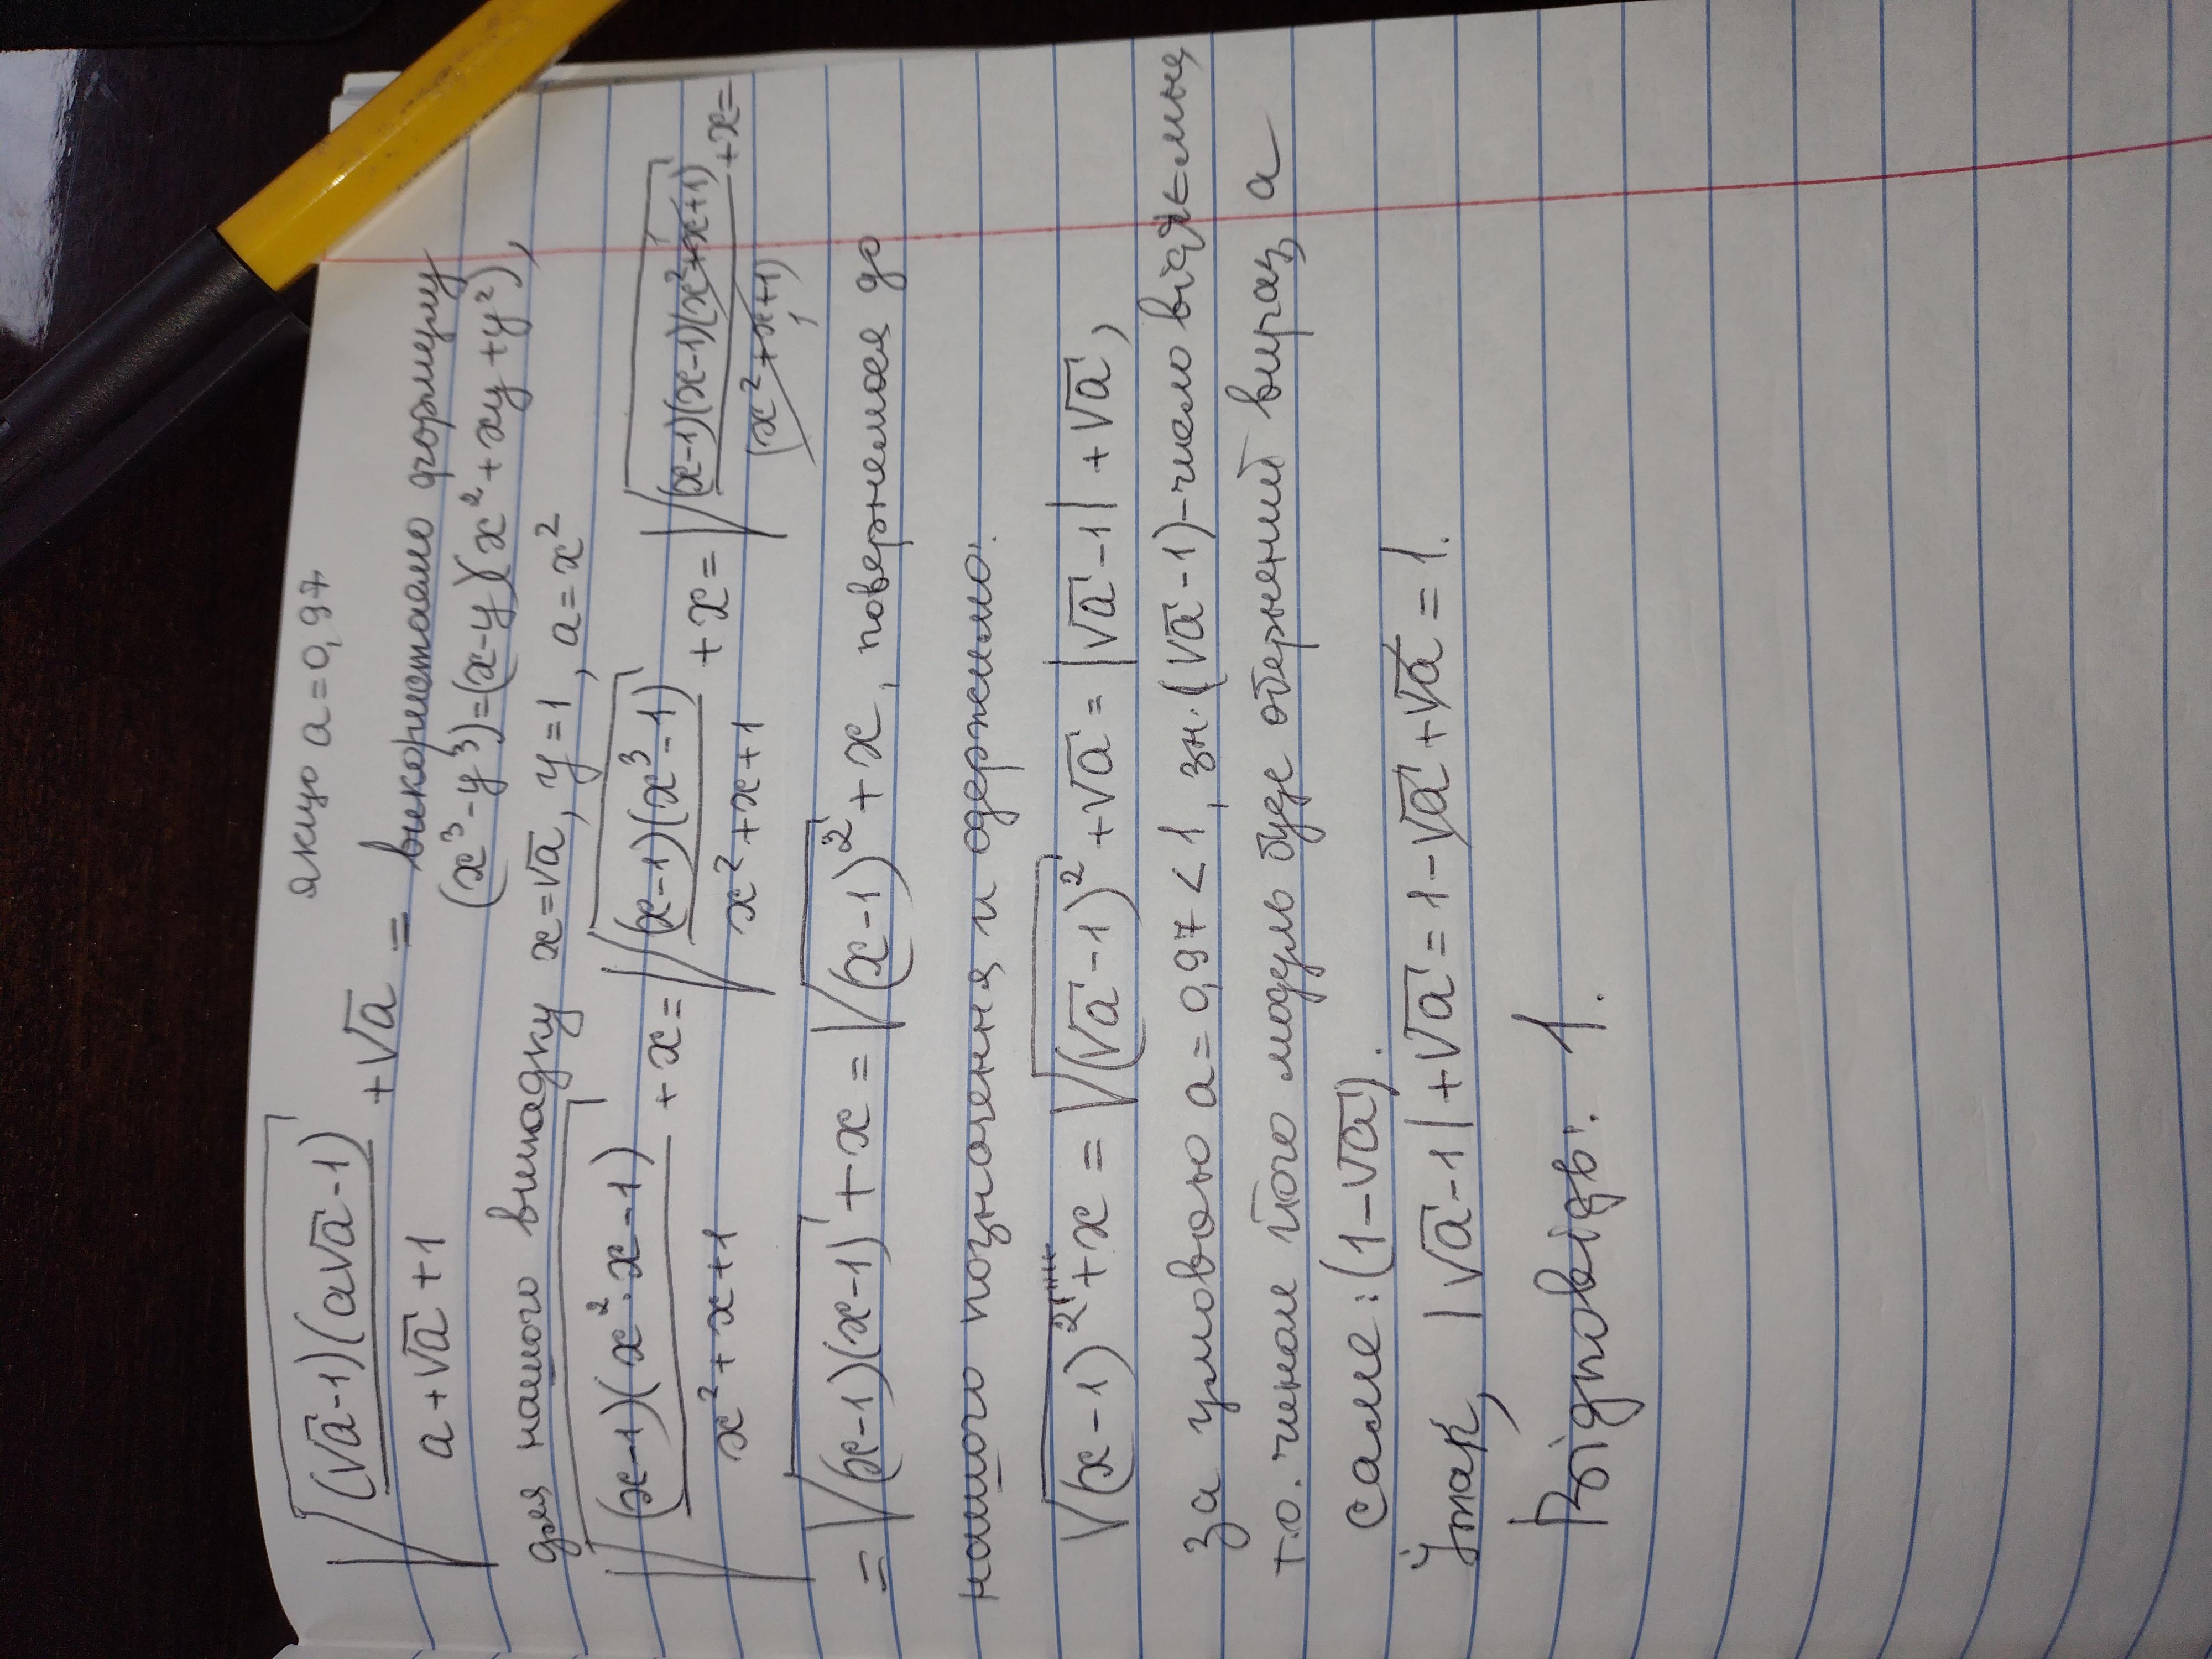 якщо a = 0,97
√((√a-1)(a√a-1)) / (a+√a+1) + √a = використаємо формулу
(x³-y³)=(x-y)(x²+xy+y²),
для нашого випадку x=√a, y=1, a=x²
√((x-1)(x²·x-1) / (x²+x+1)) + x = √((x-1)(x³-1) / (x²+x+1)) + x = √((x-1)(x-1)(x²+x+1) / (x²+x+1)) + x =
= √((x-1)(x-1)) + x = √((x-1)²) + x, повернемося до
нашого позначення и одержимо:
√((x-1)²) + x = √((√a-1)²) + √a = |√a-1| + √a,
за умовою a = 0,97 < 1, зн. (√a-1)-число від'ємне,
т.о. чином його модуль буде обернений вираз, а
саме: (1-√a).
Їтак, |√a-1| + √a = 1-√a+√a = 1.
Відповідь: 1.